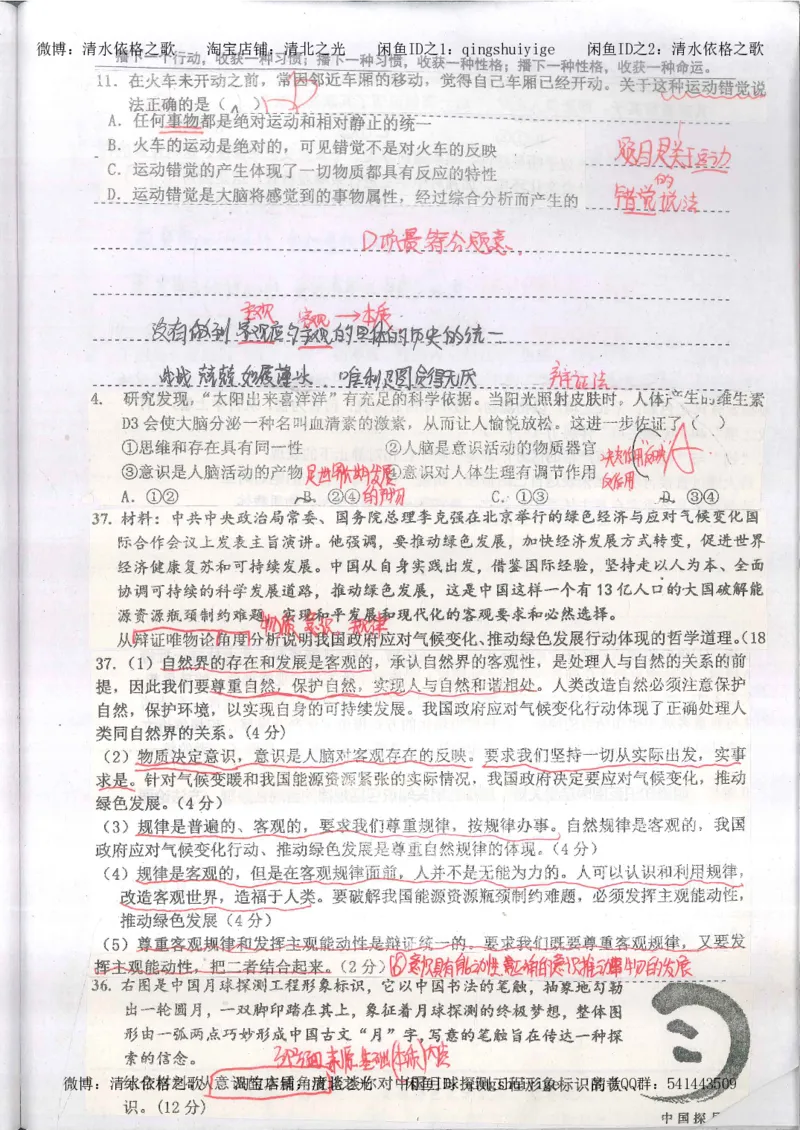 微博：清水依格之歌 淘宝店铺：清北之光 闲鱼ID之1：qingshuiyige 闲鱼ID之2：清水依格之歌
播下一个行动，收获一种习惯；播下一种习惯，收获一种性格；播下一种性格，收获一种命运。
11．在火车未开动之前，常因邻近车厢的移动，觉得自己车厢已经开动。关于这种运动错觉说
法正确的是（ ）D
A．任何事物都是绝对运动和相对静止的统一
B．火车的运动是绝对的，可见错觉不是对火车的反映
C．运动错觉的产生体现了一切物质都具有反应的特性
D．运动错觉是大脑将感觉到的事物属性，经过综合分析而产生的
题目是关于运动
的
错觉说法
D项最符合题意
主观 客观→本质
没有做到 的具体的历史的统一
辩证法
4．研究发现，“太阳出来喜洋洋”有充足的科学依据。当阳光照射皮肤时，人体产生的维生素
D3会使大脑分泌一种名叫血清素的激素，从而让人愉悦放松。这进一步佐证了（ ）A
①思维和存在具有同一性 ②人脑是意识活动的物质器官
③意识是人脑活动的产物 ④意识对人体生理有调节作用
反作用
A．①② B．②④ C．①③ D．③④
的产物
37．材料：中共中央政治局常委、国务院总理李克强在北京举行的绿色经济与应对气候变化国
际合作会议上发表主旨演讲。他强调，要推动绿色发展，加快经济发展方式转变，促进世界
经济健康复苏和可持续发展。中国从自身实践出发，借鉴国际经验，坚持走以人为本、全面
协调可持续的科学发展道路，推动绿色发展，这是中国这样一个有13亿人口的大国破解能
源资源瓶颈制约难题、实现和平发展和现代化的客观要求和必然选择。
物质 意识 规律
从辩证唯物论角度分析说明我国政府应对气候变化、推动绿色发展行动体现的哲学道理。（18
37．（1）自然界的存在和发展是客观的，承认自然界的客观性，是处理人与自然的关系的前
提，因此我们要尊重自然，保护自然，实现人与自然和谐相处。人类改造自然必须注意保护
自然，保护环境，以实现自身的可持续发展。我国政府应对气候变化行动体现了正确处理人
类同自然界的关系。（4分）
（2）物质决定意识，意识是人脑对客观存在的反映。要求我们坚持一切从实际出发，实事
求是。针对气候变暖和我国能源资源紧张的实际情况，我国政府决定要应对气候变化，推动
绿色发展。（4分）
（3）规律是普遍的、客观的，要求我们尊重规律，按规律办事。自然规律是客观的，我国
政府应对气候变化行动、推动绿色发展是尊重自然规律的体现。（4分）
（4）规律是客观的，但是在客观规律面前，人并不是无能为力的。人可以认识和利用规律，
改造客观世界，造福于人类。要破解我国能源资源瓶颈制约难题，必须发挥主观能动性，
推动绿色发展（4分）
（5）尊重客观规律和发挥主观能动性是辩证统一的。要求我们既要尊重客观规律，又要发
挥主观能动性，把二者结合起来。（2分）⑥意识具有能动性,正确的意识推动事物的发展
36．右图是中国月球探测工程形象标识，它以中国书法的笔触，抽象地勾勒
出一轮圆月，一双脚印踏在其上，象征着月球探测的终极梦想，整体图
形由一弧两点巧妙形成中国古文“月”字，写意的笔触旨在传达一种探
索的信念。
来源 基础 内容
微博：清水依格之歌 淘宝店铺：清北之光 闲鱼ID 清北QQ群：541443509
识。（12分）
中国探